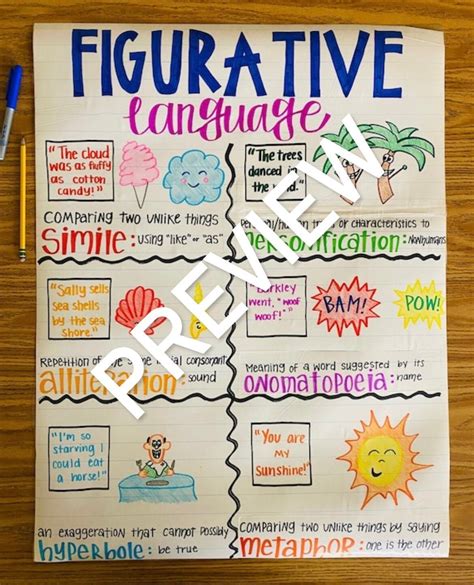 FIGURATIVE
language
"The cloud
was as fluffy
as cotton
candy!"
COMPARING TWO UNLIKE THINGS
SIMILE: USING "like" or "as"
"The trees
danced in
the wind."
traits or characteristics to
Personification: Nonhumans
"Sally sells
sea shells
by the sea
shore."
Repetition of the same initial consonant
alliteration: sound
"Barkley
went, "woof
woof!"
BAM!
POW!
Meaning of a word suggested by its
ONOMATOPOEIA: name
"I'm so
starving I
could eat
a horse!"
an exaggeration that cannot possibly
hyperbole: be true
"You are
my
sunshine!"
COMPARING TWO UNLIKE THINGS BY SAYING
METAPHOR: ONE IS THE OTHER
PREVIEW